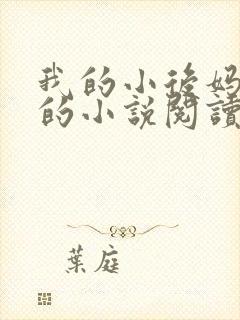 我的小後媽
的小說閱讀
葉庭